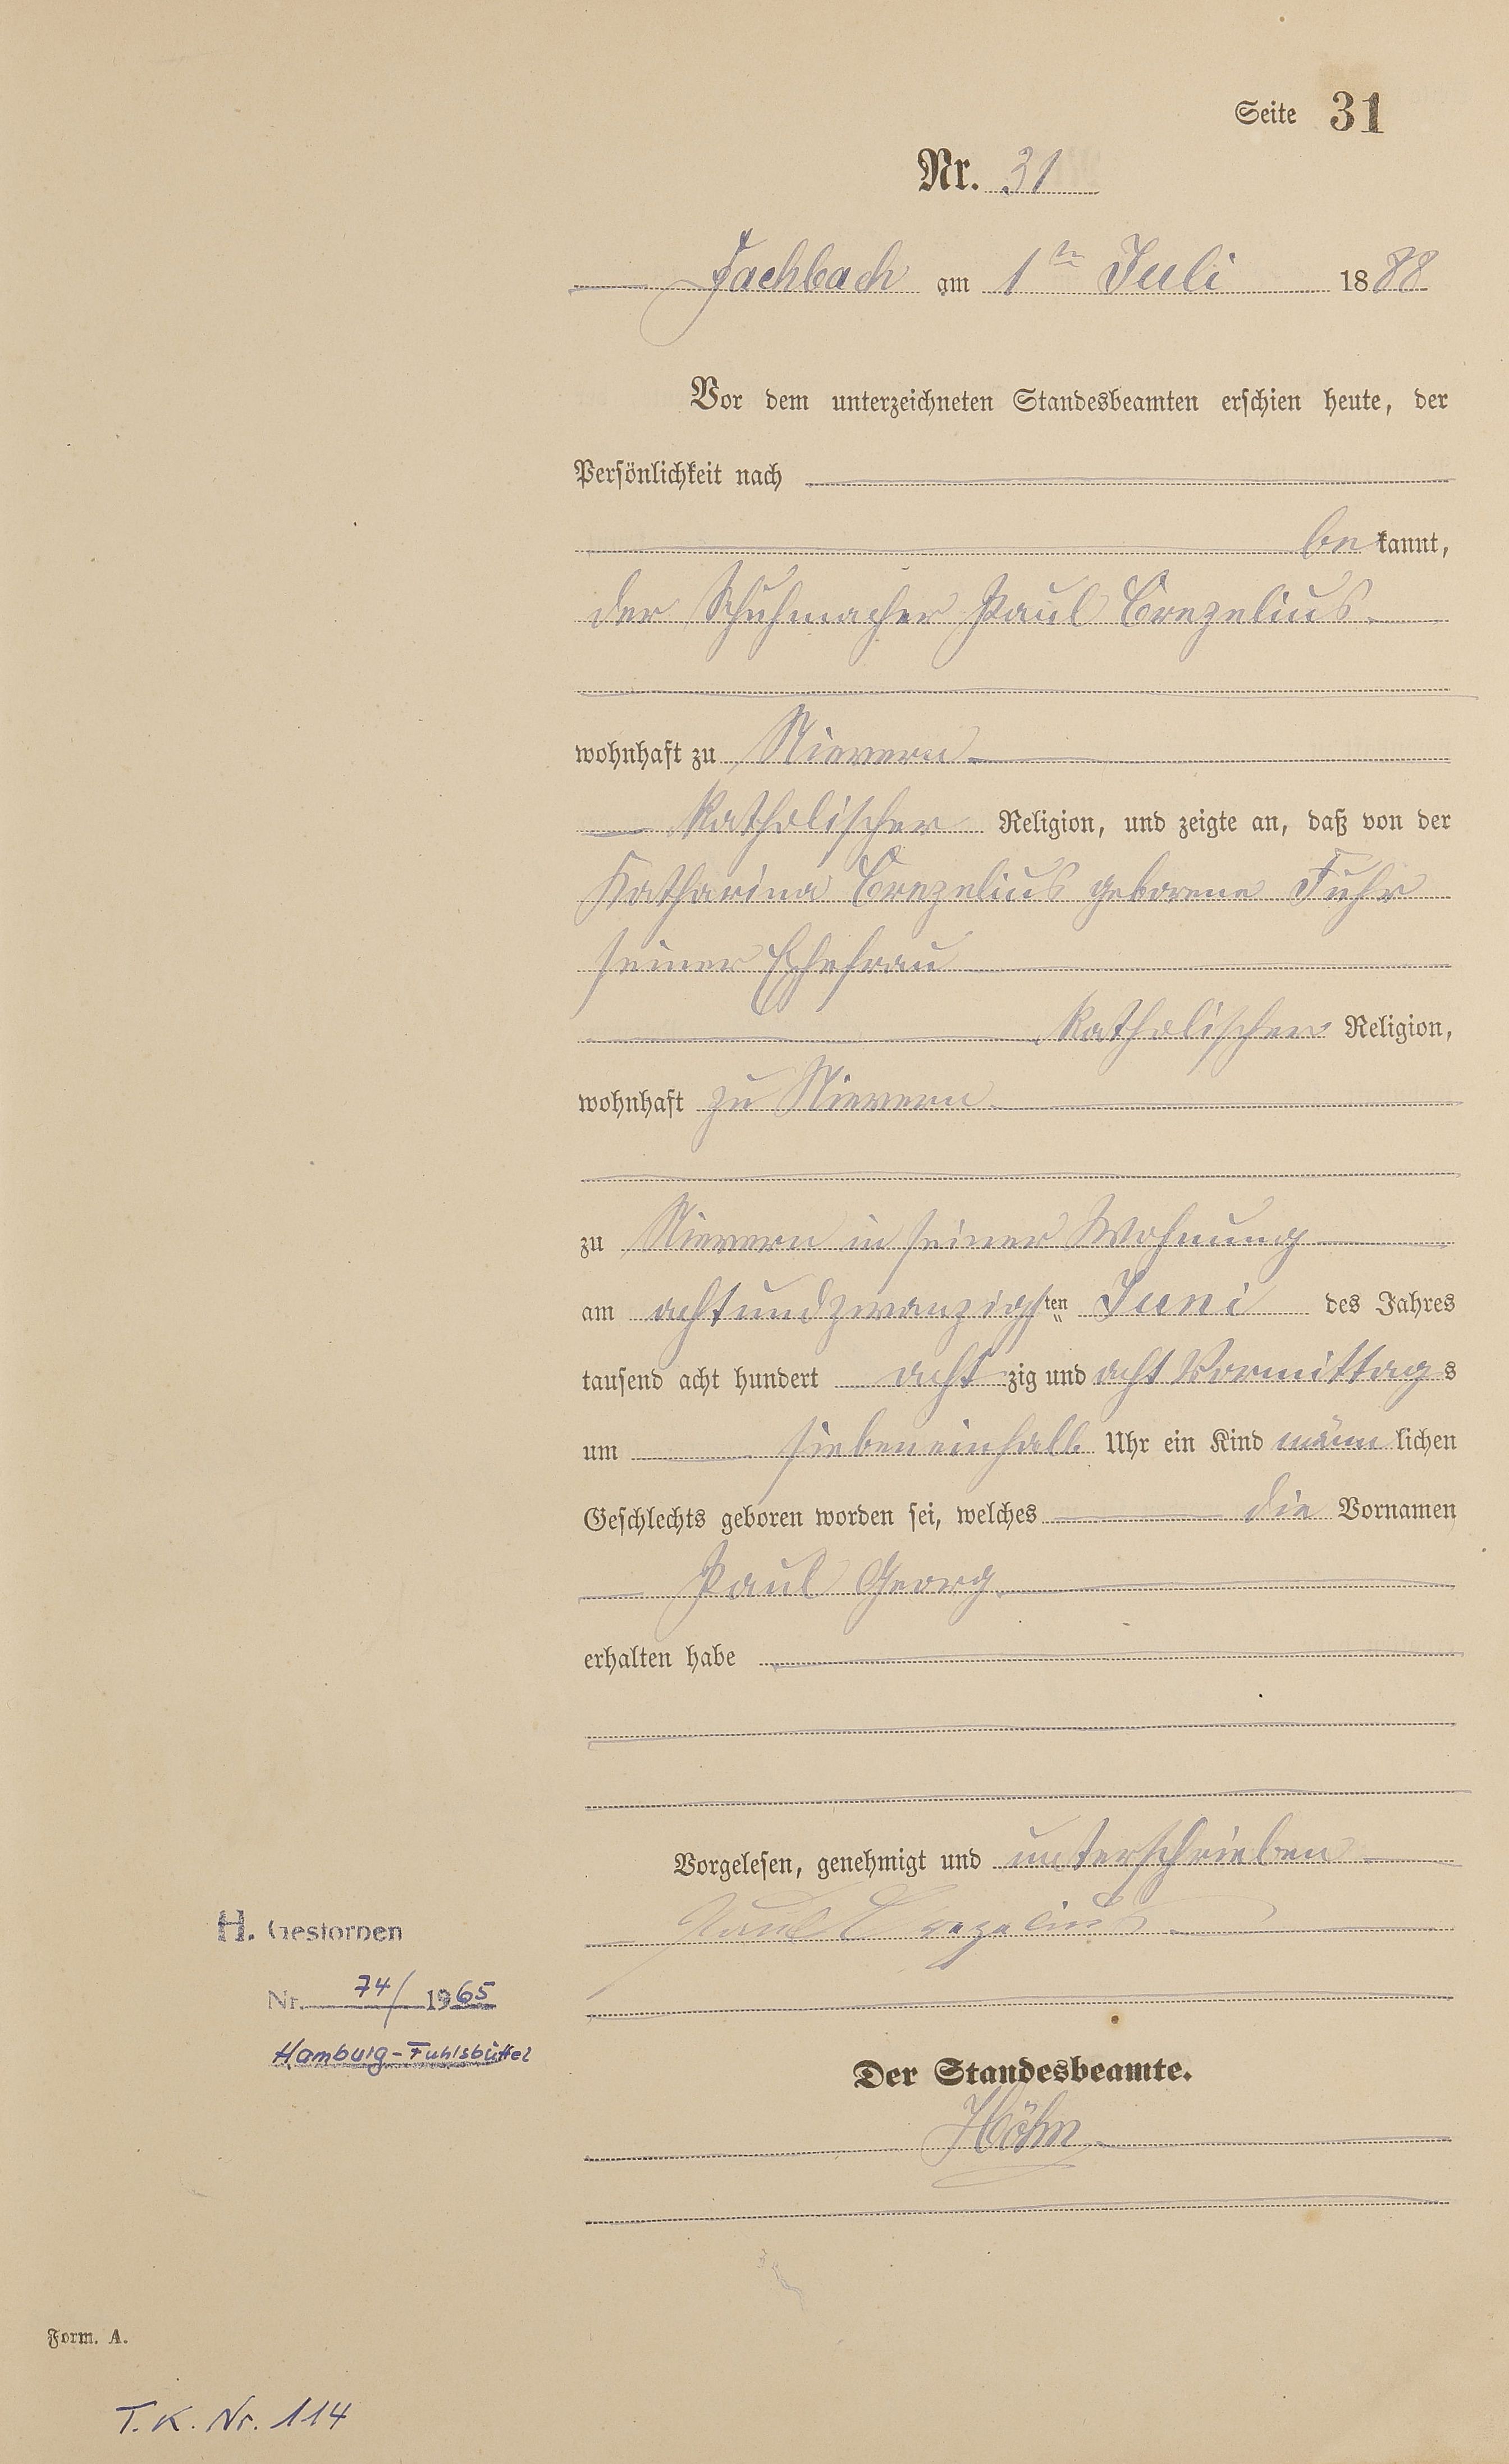 Seite 31
Nr. 31
Fachbach am 1ten Juli 1888
Vor dem unterzeichneten Standesbeamten erschien heute, der
Persönlichkeit nach
bekannt,
der Schuhmacher Paul Crezelius
wohnhaft zu Nievern
katholischer Religion, und zeigte an, daß von der
Katharina Crezelius geborene Fuhr
seiner Ehefrau
katholischer Religion,
wohnhaft zu Nievern
zu Nievern in seiner Wohnung
am achtundzwanzigsten Juni des Jahres
tausend acht hundert achtzig und acht Vormittags
um siebeneinhalb Uhr ein Kind männlichen
Geschlechts geboren worden sei, welches die Vornamen
Paul Georg
erhalten habe
Vorgelesen, genehmigt und unterschrieben
Paul Crezelius
H. Gestorben
Nr. 74/1965
Hamburg-Fuhlsbüttel
Der Standesbeamte.
Höhn
Form. A.
T.K. Nr. 114